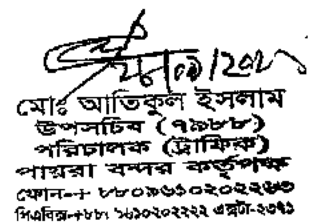 মোঃ আতিকুল ইসলাম
উপসচিব (৭৯৮৮)
পরিচালক (ট্রাফিক)
পায়রা বন্দর কর্তৃপক্ষ
ফোন-+ ৮৮০৯৬১০২০২২৬৩
পিএবিক্স-+৮৮০ ৯৬১০২০২২২২ এক্সটা-২৩৭১